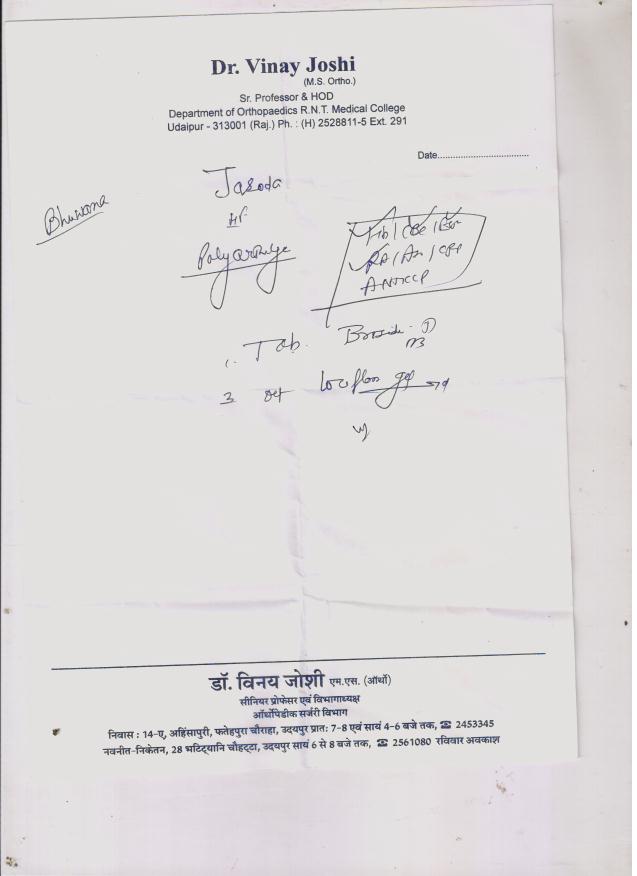 Dr. Vinay Joshi
(M.S. Ortho.)
Sr. Professor & HOD
Department of Orthopaedics R.N.T. Medical College
Udaipur - 313001 (Raj.) Ph. : (H) 2528811-5 Ext. 291
Date................................
Jasoda
Bhuwana
Hb / CBC / ESR
RA / / CRP
ANTICCP
1. Tab.
3
डॉ. विनय जोशी एम.एस. (ऑर्थो)
सीनियर प्रोफेसर एवं विभागाध्यक्ष
ऑर्थोपेडीक सर्जरी विभाग
निवास : 14-ए, अहिंसापुरी, फतेहपुरा चौराहा, उदयपुर प्रातः 7-8 एवं सायं 4-6 बजे तक, ☎ 2453345
नवनीत-निकेतन, 28 भटि्यानि चौहट्टा, उदयपुर सायं 6 से 8 बजे तक, ☎ 2561080 रविवार अवकाश